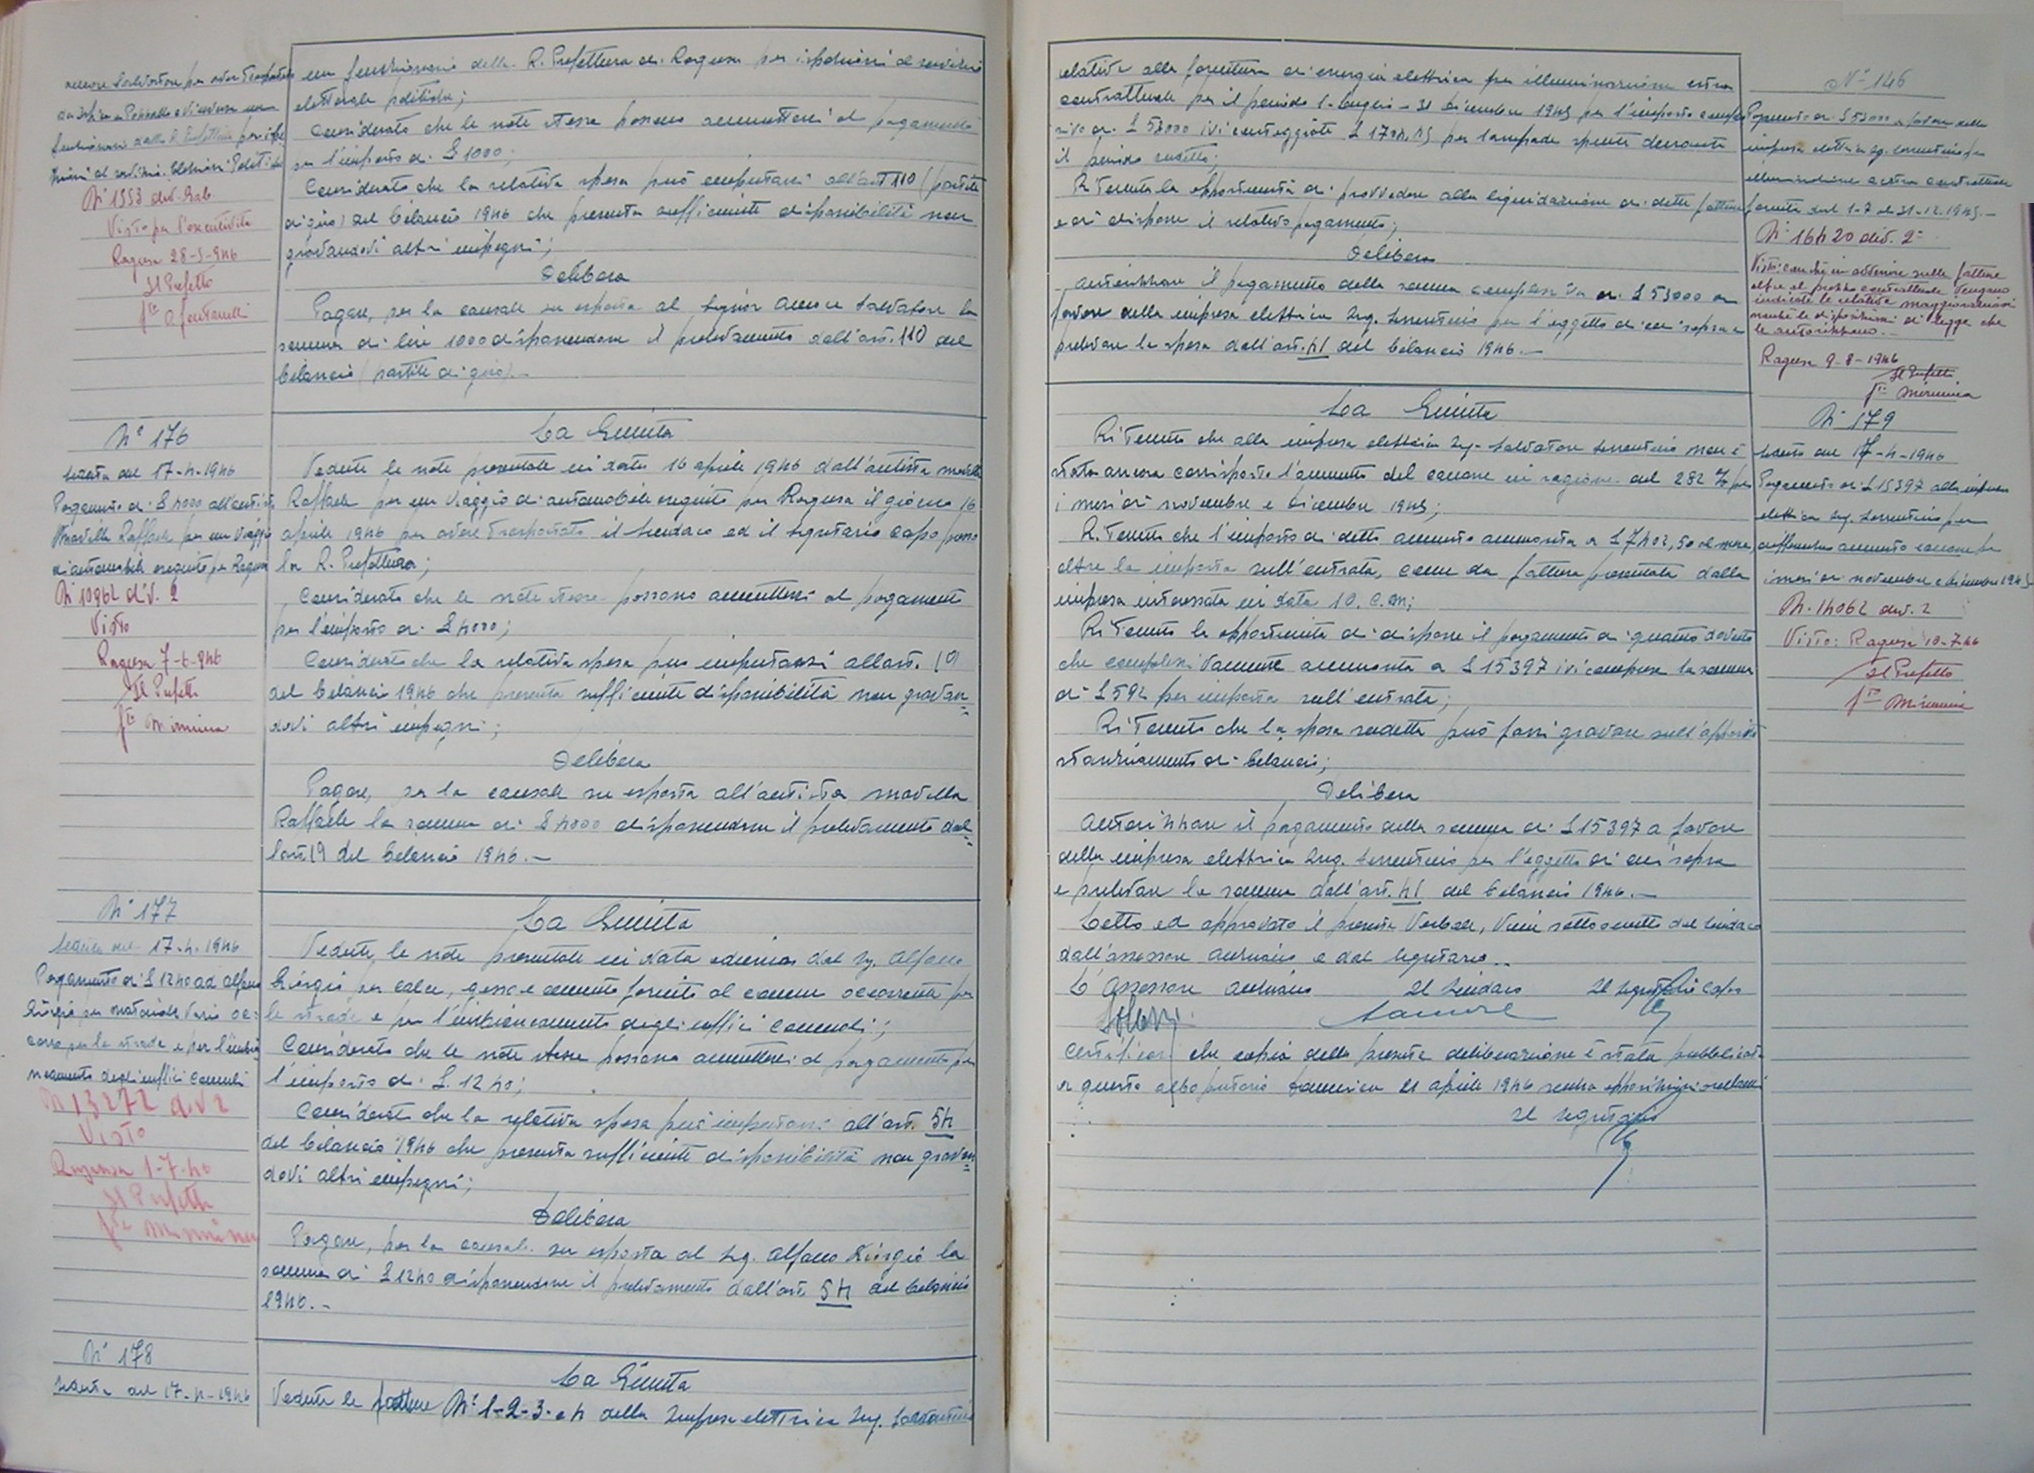 un funzionario della R. Prefettura di Ragusa per ispezioni al servizio
elettorale politiche;
Considerato che le note stesse possono ammettersi al pagamento
per l'importo di £ 1000;
Considerato che la relativa spesa può imputarsi all'art 110 (partite
di giro) del bilancio 1946 che presenta sufficiente disponibilità non
gravandovi altri impegni;
Delibera
Pagare, per la causale su esposta al signor Salvatore la
somma di lire 1000 disponendone il prelevamento dall'art. 110 del
bilancio (partite di giro).-
N° 1553 div. Gab.
Visto per l'esecutività
Ragusa 28-5-946
Il Prefetto
N° 176
Seduta del 17-4-1946
Pagamento di £ 4000 all'autista
Raffaele per un viaggio
di automobile eseguito per Ragusa
N° 10962 div. 2
Visto
Ragusa 7-6-946
Il Prefetto
La Giunta
Vedute le note presentate in data 16 aprile 1946 dall'autista
Raffaele per un viaggio di automobile eseguito per Ragusa il giorno 16
aprile 1946 per avere trasportato il Sindaco ed il segretario capo presso
la R. Prefettura;
Considerato che le note stesse possono ammettersi al pagamento
per l'importo di £ 4000;
Considerato che la relativa spesa può imputarsi all'art. 19
del bilancio 1946 che presenta sufficiente disponibilità non gravan=
dovi altri impegni;
Delibera
Pagare, per la causale su esposta all'autista
Raffaele la somma di £ 4000 disponendone il prelevamento dal=
l'art 19 del bilancio 1946.-
N° 177
Seduta del 17-4-1946
Pagamento di £ 1240 ad Alfano
Giorgio per materiale vario oc=
corso per le strade e per l'imbian
camento degli uffici comunali
N 13272 div 2
Visto
Ragusa 1-7-46
Il Prefetto
La Giunta
Vedute le note presentate in data odierna dal sig. Alfano
Giorgio per calce, gesso e cemento fornito al comune occorrente per
le strade e per l'imbiancamento degli uffici comunali;
Considerato che le note stesse possono ammettersi al pagamento per
l'importo di £. 1240;
Considerato che la relativa spesa può imputarsi all'art. 54
del bilancio 1946 che presenta sufficiente disponibilità non gravan=
dovi altri impegni;
Delibera
Pagare, per la causale su esposta al sig. Alfano Giorgio la
somma di £ 1240 disponendone il prelevamento dall'art. 54 del bilancio
1946.-
N° 178
Seduta del 17-4-1946
La Giunta
Vedute le fatture N° 1-2-3-e 4 della Impresa elettrica Ing.
relative alla fornitura di energia elettrica per illuminazione extra
contrattuale per il periodo 1-luglio-31 dicembre 1945 per l'importo comples
sivo di £ 53000 ivi conteggiate £ per lampade spente durante
il periodo suddetto;
Ritenuta la opportunità di provvedere alla liquidazione di dette fatture
e di disporre il relativo pagamento;
Delibera
Autorizzare il pagamento della somma complessiva di £ 53000 a
favore della impresa elettrica Ing. Sorrentino per l'oggetto di cui sopra e
prelevare la spesa dall'art. 41 del bilancio 1946.-
N° 146
Pagamento di £ 53000 a favore della
impresa elettrica Ing. Sorrentino per
illuminazione extra contrattuale
fornita dal 1-7 al 31-12-1945.-
N° 16420 div. 2ª
Ragusa 9-8-1946
Il Prefetto
La Giunta
Ritenuto che alla impresa elettrica Ing. Salvatore Sorrentino non è
stato ancora corrisposto l'aumento del canone in ragione del 282 % per
i mesi di novembre e dicembre 1945;
Ritenuto che l'importo di detto aumento ammonta a £ 7402,50 al mese
oltre la imposta sull'entrata, come da fattura presentata dalla
impresa interessata in data 10. c.m;
Ritenuto la opportunità di disporre il pagamento di quanto dovuto
che complessivamente ammonta a £ 15397 ivi compreso la somma
di £ 592 per imposta sull'entrata;
Ritenuto che la spesa suddetta può farsi gravare sull'apposito
stanziamento di bilancio;
Delibera
Autorizzare il pagamento della somma di £ 15397 a favore
della impresa elettrica Ing. Sorrentino per l'oggetto di cui sopra
e prelevare la somma dall'art. 41 del bilancio 1946.-
N° 179
Seduta del 17-4-1946
Pagamento di £ 15397 alla impresa
elettrica Ing. Sorrentino per
differenza aumento canone per
i mesi di novembre e dicembre 1945
N. 14062 div. 2
Visto: Ragusa 10-7-46
Il Prefetto
Letto ed approvato il presente Verbale, viene sottoscritto dal Sindaco
dall'assessore anziano e dal segretario..
L'Assessore anziano Il Sindaco Il segretario Capo
Certificasi che copia della presente deliberazione è stata pubblicata
a questo albo pretorio domenica 21 aprile 1946 senza opposizioni o reclami
Il segretario